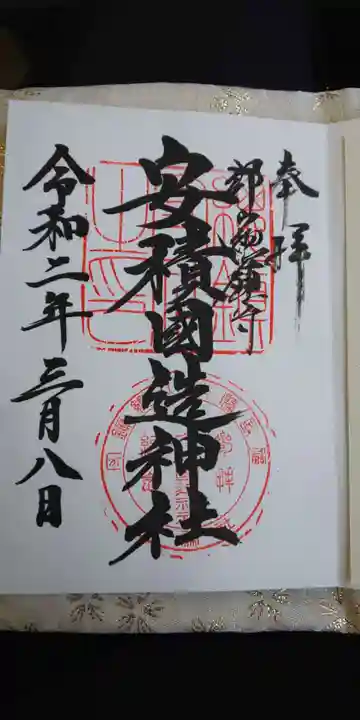 奉拝
郡山総鎮守
安積國造神社
令和二年三月八日